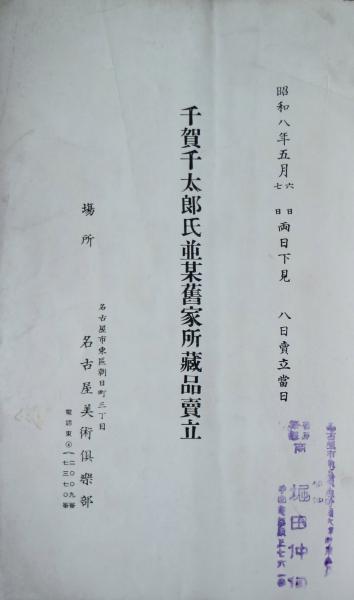 昭和八年五月六日七日両日下見 八日賣立當日
千賀千太郎氏並某舊家所藏品賣立
場所
名古屋市東區朝日町三丁目
名古屋美術俱樂部
堀田仲